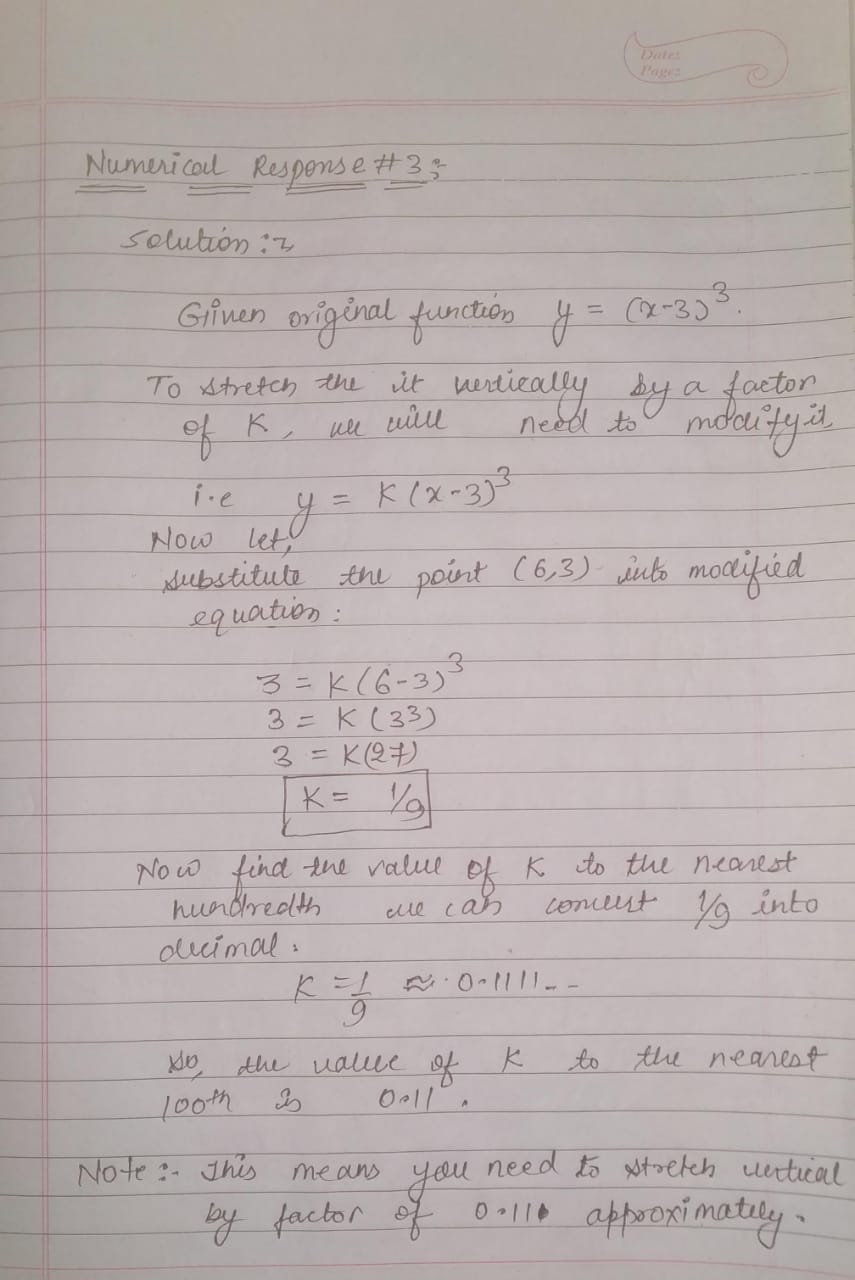 Date:
Page:
Numerical Response #3:-
Solution:-
Given original function y = (x-3)³.
To stretch the it vertically by a factor
of K, we will need to modify it
i.e y = K(x-3)³
Now let,
substitute the point (6,3) into modified
equation:
3 = K(6-3)³
3 = K(3³)
3 = K(27)
K = 1/9
Now find the value of K to the nearest
hundredth we can convert 1/9 into
decimal.
K = 1/9 ≈ 0.1111--
so, the value of K to the nearest
100th is 0.11.
Note:- This means you need to stretch vertical
by factor of 0.11 approximately.